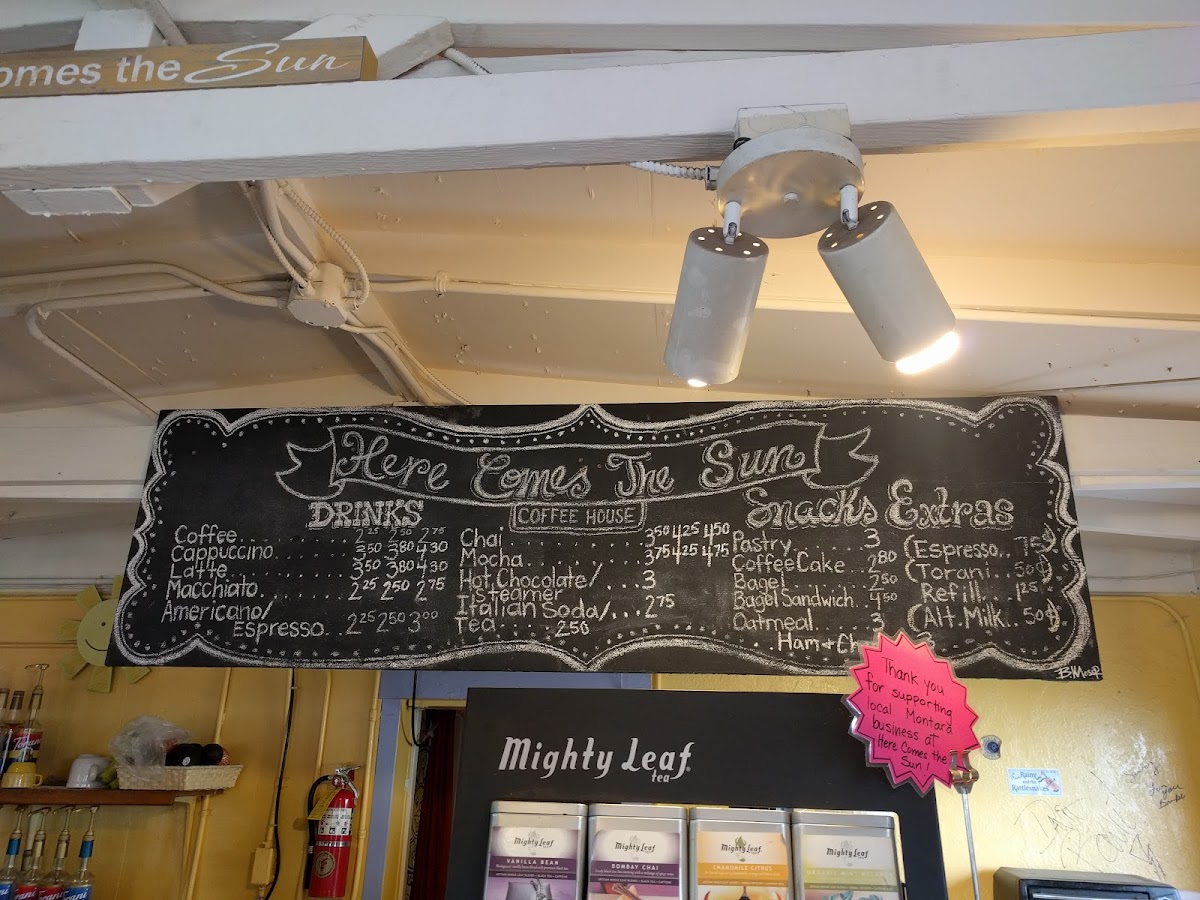 omes the Sun
Here Comes The Sun
COFFEE HOUSE
DRINKS
Coffee........ 2 25 2 50 2 75
Cappuccino........ 3 50 3 80 4 30
Latte........ 3 50 3 80 4 30
Macchiato........ 2 25 2 50 2 75
Americano/
Espresso.. 2 25 2 50 3 00
Chai........ 3 50 4 25 4 50
Mocha........ 3 75 4 25 4 75
Hot Chocolate/.... 3
Steamer
Italian Soda/... 2 75
Tea...... 2 50
Snacks
Pastry...... 3
Coffee Cake.. 2 80
Bagel...... 2 50
Bagel Sandwich.. 4 50
Oatmeal...... 3
..Ham + Ch
Extras
(Espresso.. 75¢)
(Torani.. 50¢)
Refill... 1 25
(Alt. Milk.. 50¢)
B. Mosq
Thank you
for supporting
local Montara
business at
Here Comes the
Sun!
Mighty Leaf
tea
Mighty Leaf
VANILLA BEAN
Mighty Leaf
BOMBAY CHAI
Mighty Leaf
CHAMOMILE CITRUS
Mighty Leaf